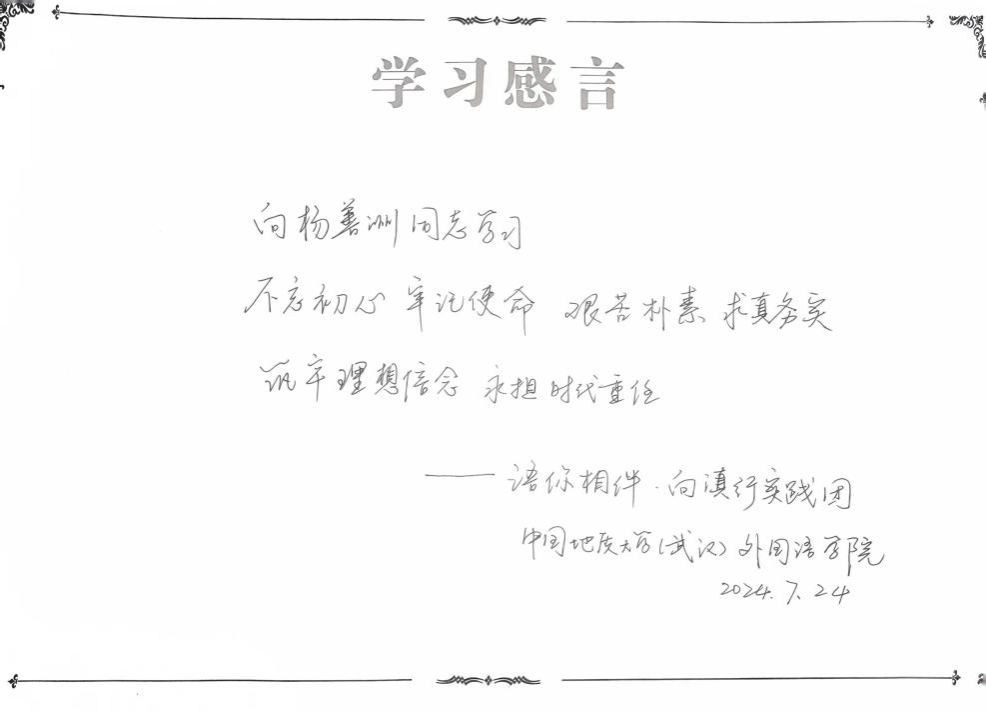 学习感言
向杨善洲同志学习
不忘初心 牢记使命 艰苦朴素 求真务实
筑牢理想信念 永担时代重任
——语你相伴·向滇行实践团
中国地质大学(武汉)外国语学院
2024.7.24